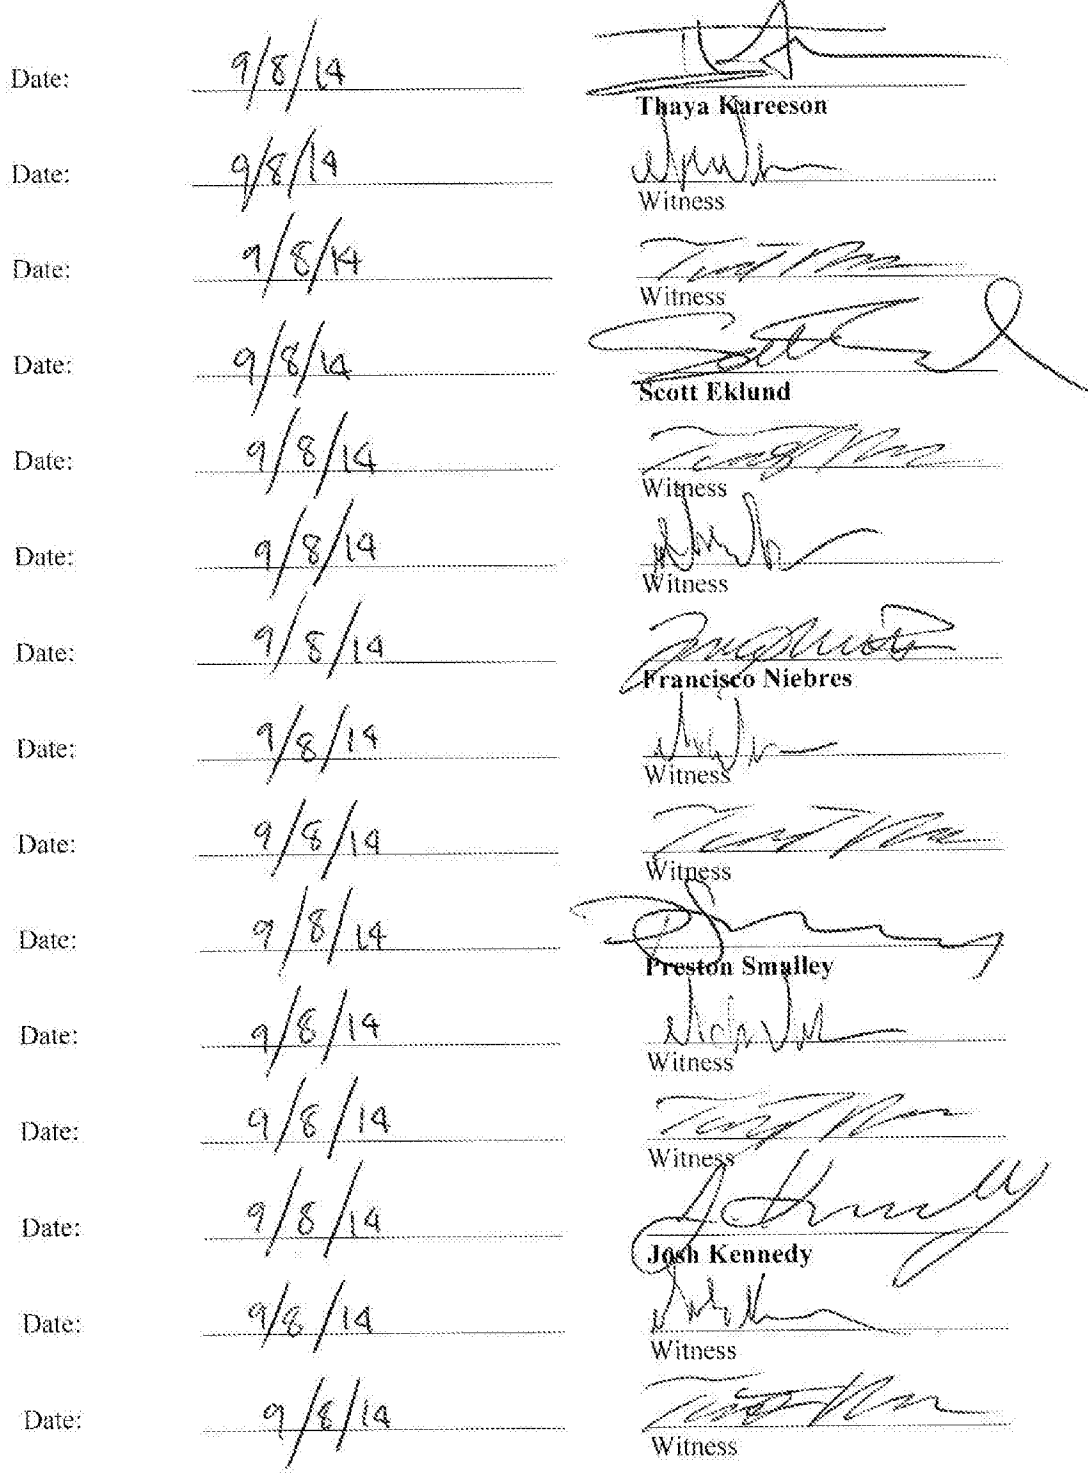 Date: 9/8/14
Thaya Kareeson
Date: 9/8/14
Witness
Date: 9/8/14
Witness
Date: 9/8/14
Scott Eklund
Date: 9/8/14
Witness
Date: 9/8/14
Witness
Date: 9/8/14
Francisco Niebres
Date: 9/8/14
Witness
Date: 9/8/14
Witness
Date: 9/8/14
Preston Smalley
Date: 9/8/14
Witness
Date: 9/8/14
Witness
Date: 9/8/14
Josh Kennedy
Date: 9/8/14
Witness
Date: 9/8/14
Witness